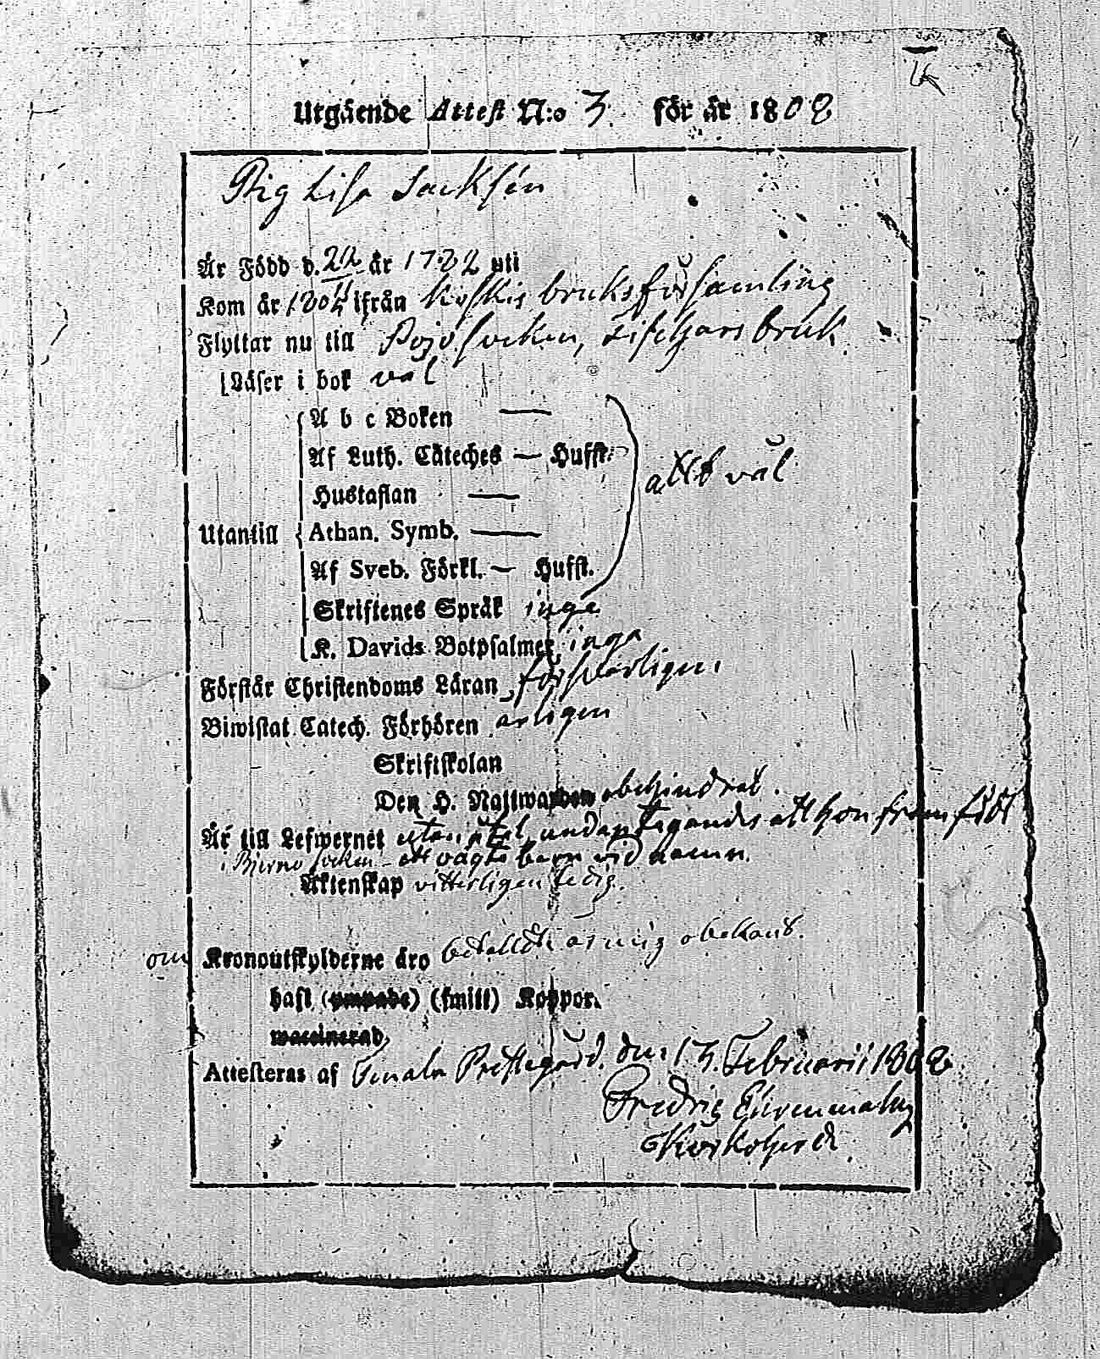 Utgående Attest N:o 3. för år 1808
Pig Lisa Sacksén
År Född d. 22 år 1782 uti
Kom år 1804 ifrån Koskis bruksförsamling
Flyttar nu till Pojo socken, Fiskars bruk.
Läser i bok väl
A b c Boken —
Af Luth. Cateches — Hufst.
Hustaflan — allt väl
Utantill Athan. Symb. —
Af Sveb. Förkl. — Hufst.
Skriftenes Språk inga
K. Davids Botpsalmer inga
Förstår Christendoms Läran försvarligen.
Biwistat Catech. Förhören årligen
Skriftskolan
Den H. Nattwarden obehindrat.
År till Lefwernet utan undantagandes att hon framfödt
i Bjerno socken ett oägta barn vid namn.
Äktenskap vitterligen ledig.
om Kronoutskylderne äro betallde är mig obekant.
haft (ympade) (smitt) Koppor.
waccinerad,
Attesteras af Tenala Prestegård. den 13. Februarii 1808
Fredric Ehrnmalm
Kyrkoherde.